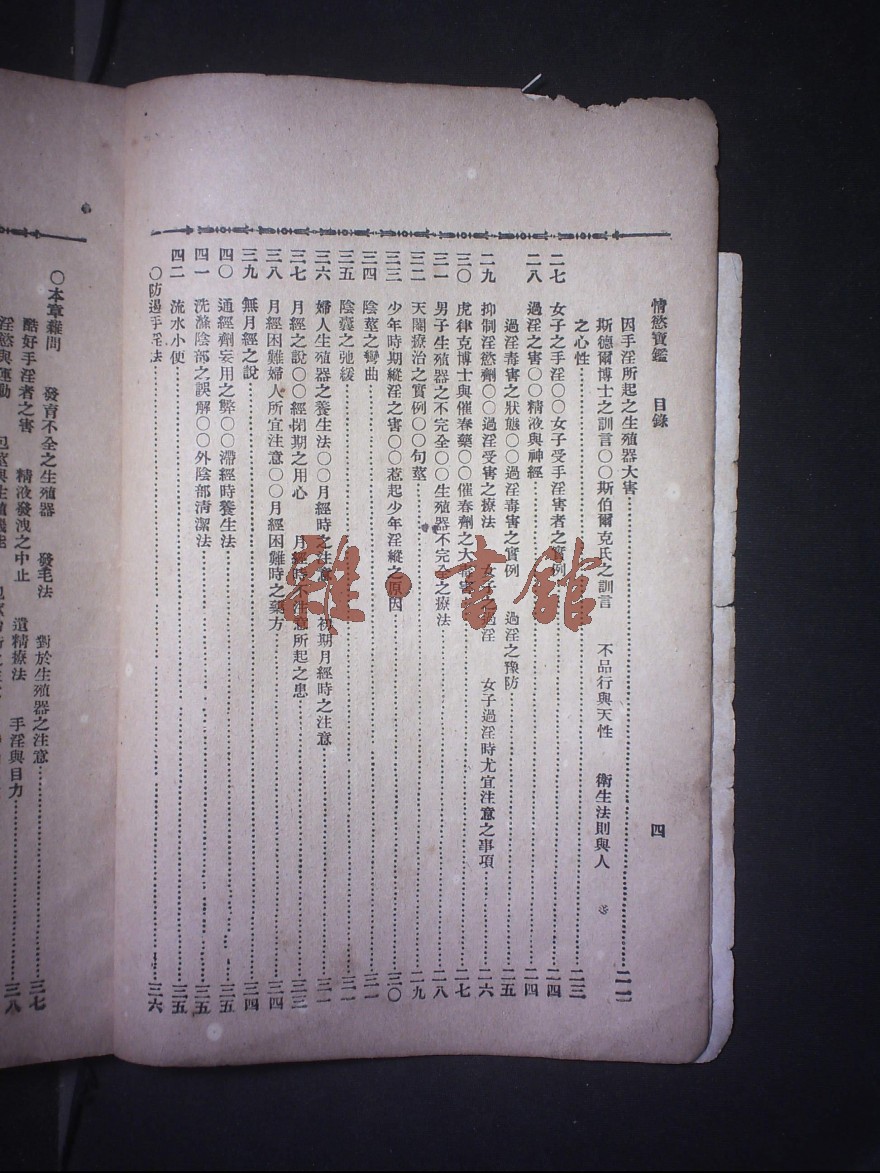 情慾寶鑑　目錄　四
因手淫所起之生殖器大害……二二
斯德爾博士之訓言〇〇斯伯爾克氏之訓言　不品行與天性　衛生法則與人
之心性……二三
二七　女子之手淫〇〇女子受手淫害者之實例……二四
二八　過淫之害〇〇精液與神經……二四
過淫毒害之狀態〇〇過淫毒害之實例　過淫之豫防……二五
二九　抑制淫慾劑〇〇過淫受害之療法　女子之過淫　女子過淫時尤宜注意之事項……二六
三〇　虎律克博士與催春藥〇〇催春劑之大毒害……二七
三一　男子生殖器之不完全〇〇生殖器不完全之療法……二八
三二　天閹療治之實例〇〇句莖……二九
三三　少年時期縱淫之害〇〇惹起少年淫縱之原因……三〇
三四　陰莖之彎曲……三一
三五　陰囊之弛緩……三一
三六　婦人生殖器之養生法〇〇月經時之注意　初期月經時之注意……三一
三七　月經之說〇〇經閉期之用心　月經時不注意所起之患……三三
三八　月經困難婦人所宜注意〇〇月經困難時之藥方……三四
三九　無月經之說……三四
四〇　通經劑妄用之弊〇〇滯經時養生法……三五
四一　洗滌陰部之誤解〇〇外陰部清潔法……三五
四二　流水小便……三五
〇防遏手淫法……三六
〇本章雜問　發育不全之生殖器　發毛法　對於生殖器之注意……三七
酷好手淫者之害　精液發洩之中止　遺精療法　手淫與目力
淫慾與運動　包莖與生殖機能……三八
雜·書館